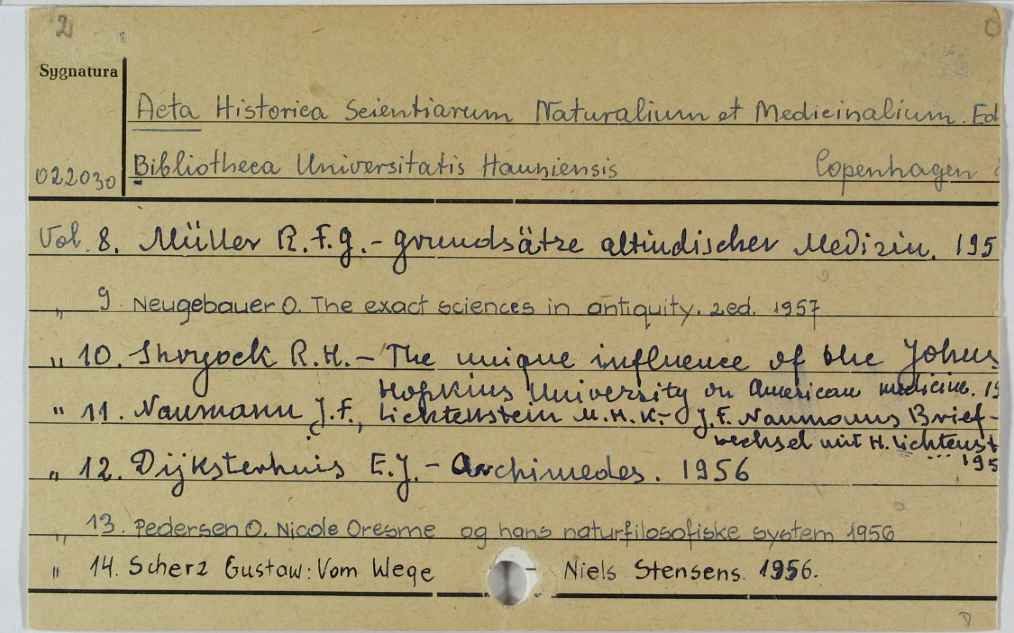 2
Sygnatura
Acta Historica Scientiarum Naturalium et Medicinalium. Ed
022030 Bibliotheca Universitatis Hauniensis Copenhagen
Vol. 8. Müller R.F.G. - Grundsätze altindischer Medizin. 195
" 9. Neugebauer O. The exact sciences in antiquity. 2ed. 1957
" 10. Shryock R.H. - The unique influence of the Johns
Hopkins University on American medicine. 19
" 11. Naumann J.F., Lichtenstein M.H.K. - J.F. Naumanns Brief-
wechsel mit H. Lichtenst
195
" 12. Dijksterhuis E.J. - Archimedes. 1956
" 13. Pedersen O. Nicole Oresme og hans naturfilosofiske system 1956
" 14. Scherz Gustaw: Vom Wege - Niels Stensens. 1956.